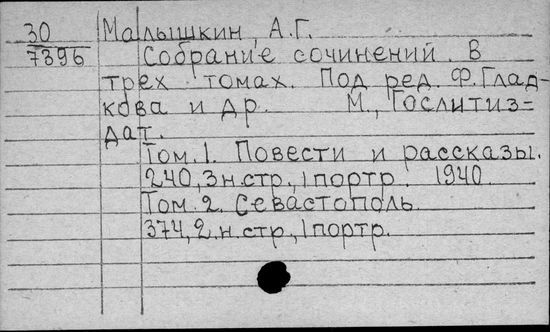 30 Малышкин, А.Г.
7396 Собрание сочинений. В
трех томах. Под ред. Ф.Глад-
кова и др. М., Гослитиз=
дат.
Том.1. Повести и рассказы.
240,3н.стр.,1портр. 1940
Том.2. Севастополь.
374,2.н.стр.,1портр.